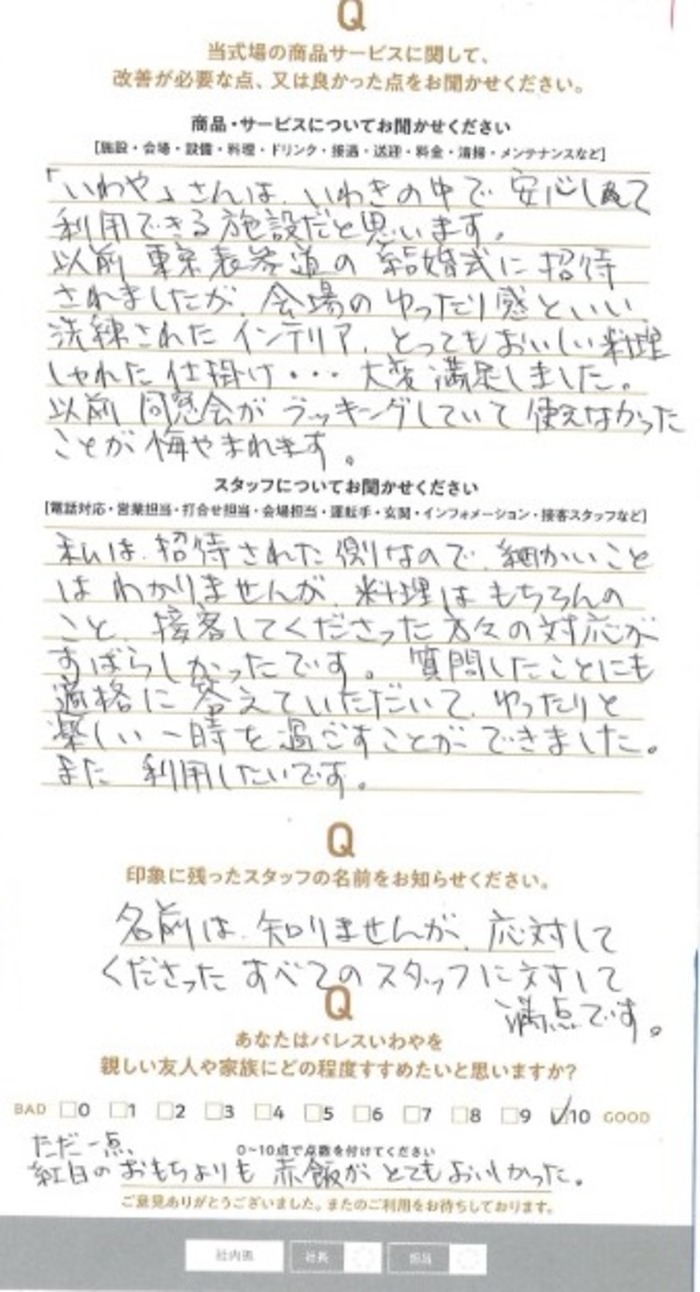 Q
当式場の商品サービスに関して、
改善が必要な点、又は良かった点をお聞かせください。
商品・サービスについてお聞かせください
[施設・会場・設備・料理・ドリンク・接遇・送迎・料金・清掃・メンテナンスなど]
「いわや」さんは、いわきの中で安心して
利用できる施設だと思います。
以前 東京表参道の結婚式に招待
されましたが、会場のゆったり感といい、
洗練されたインテリア、とってもおいしい料理
しゃれた仕掛け・・・大変満足しました。
以前 同窓会がブッキングしていて使えなかった
ことが悔やまれます。
スタッフについてお聞かせください
[電話対応・営業担当・打合せ担当・会場担当・運転手・玄関・インフォメーション・接客スタッフなど]
私は、招待された側なので、細かいこと
はわかりませんが、料理はもちろんの
こと、接客してくださった方々の対応が
すばらしかったです。質問したことにも
適格に答えていただいて、ゆったりと
楽しい一時を過ごすことができました。
また 利用したいです。
Q
印象に残ったスタッフの名前をお知らせください。
名前は、知りませんが、応対して
くださった すべてのスタッフに対して
満点です。
Q
あなたはパレスいわやを
親しい友人や家族にどの程度すすめたいと思いますか?
BAD 0 1 2 3 4 5 6 7 8 9 10 GOOD
0~10点で点数を付けてください
ただ一点、
紅白のおもちよりも 赤飯が とてもおいしかった。
ご意見ありがとうございました。またのご利用をお待ちしております。
社長 担当